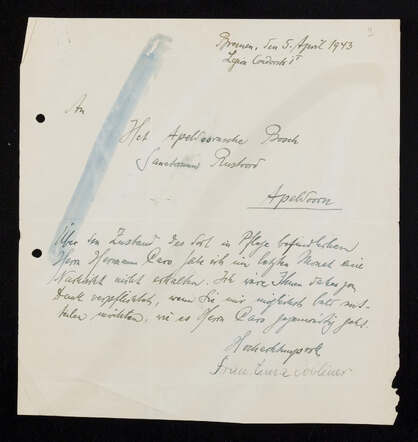 Bremen, den 5. April 1943
An
Het Apeldoornsche Bosch
Apeldoorn
Über den Zustand des dort in Pflege befindlichen
Herrn Hermann Caro habe ich im letzten Monat eine
Nachricht nicht erhalten. Ich wäre Ihnen daher zu
Dank verpflichtet, wenn Sie mir möglichst bald mit-
teilen möchten, wie es Herrn Caro gegenwärtig geht.
Hochachtungsvoll
Frau